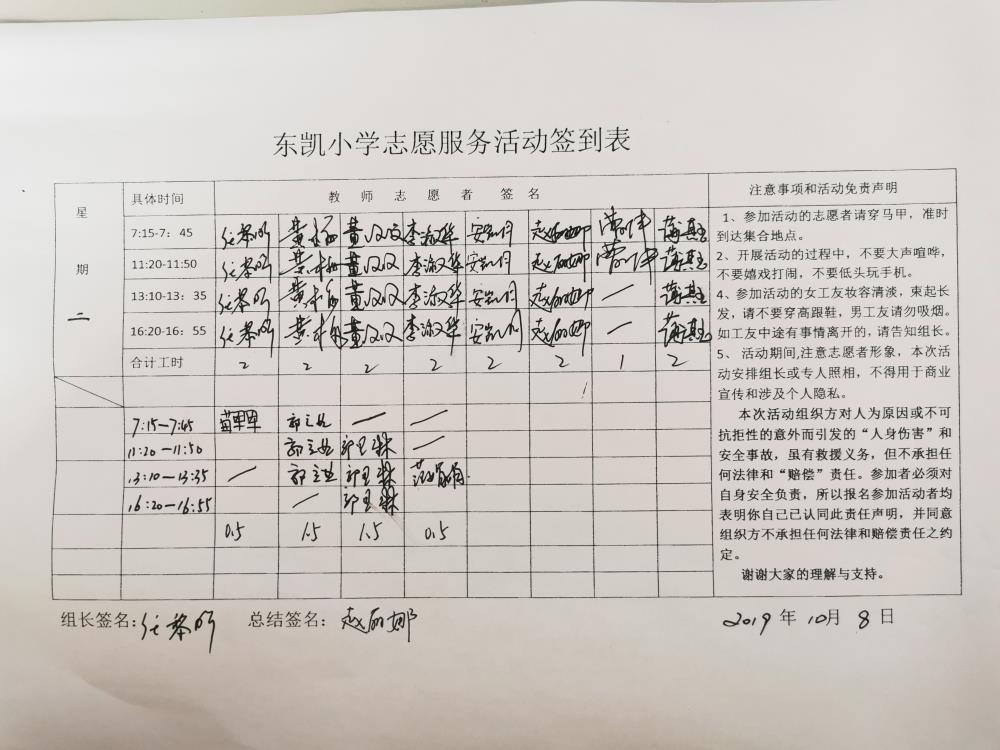 东凯小学志愿服务活动签到表
星期二
具体时间 教师志愿者签名
7:15-7：45 黄 李淑华 安 赵丽娜 薄其
11:20-11:50 黄 李淑华 安 赵丽娜 薄其
13:10-13：35 黄 李淑华 安 赵丽娜 — 薄其
16:20-16：55 黄 李淑华 安 赵丽娜 — 薄其
合计工时 2 2 2 2 2 2 1 2
7:15—7:45 苗 郭 — —
11:20—11:50 郭 郭 —
13:10—13:35 — 郭 郭 范
16:20—16:55 — 郭
0.5 1.5 1.5 0.5
注意事项和活动免责声明
1、参加活动的志愿者请穿马甲，准时
到达集合地点。
2、开展活动的过程中，不要大声喧哗，
不要嬉戏打闹，不要低头玩手机。
4、参加活动的女工友妆容清淡，束起长
发，请不要穿高跟鞋，男工友请勿吸烟。
如工友中途有事情离开的，请告知组长。
5、 活动期间,注意志愿者形象，本次活
动安排组长或专人照相，不得用于商业
宣传和涉及个人隐私。
本次活动组织方对人为原因或不可
抗拒性的意外而引发的“人身伤害”和
安全事故，虽有救援义务，但不承担任
何法律和“赔偿”责任。参加者必须对
自身安全负责，所以报名参加活动者均
表明你自己已认同此责任声明，并同意
组织方不承担任何法律和赔偿责任之约
定。
谢谢大家的理解与支持。
组长签名: 总结签名: 赵丽娜 2019 年 10月 8 日